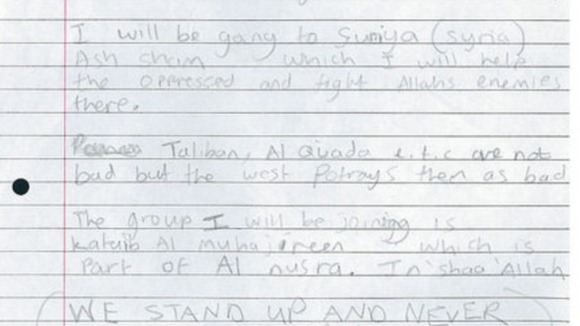 I will be gang to Suriya (syria)
Ash sham which I will help
the oppressed and fight Allahs enemies
there.
Taliban, Al Quada e.t.c are not
bad but the west Potrays them as bad
The group I will be joining is
katuib Al muhajireen which is
Part of Al nusra. In'shaa'Allah
WE STAND UP AND NEVER